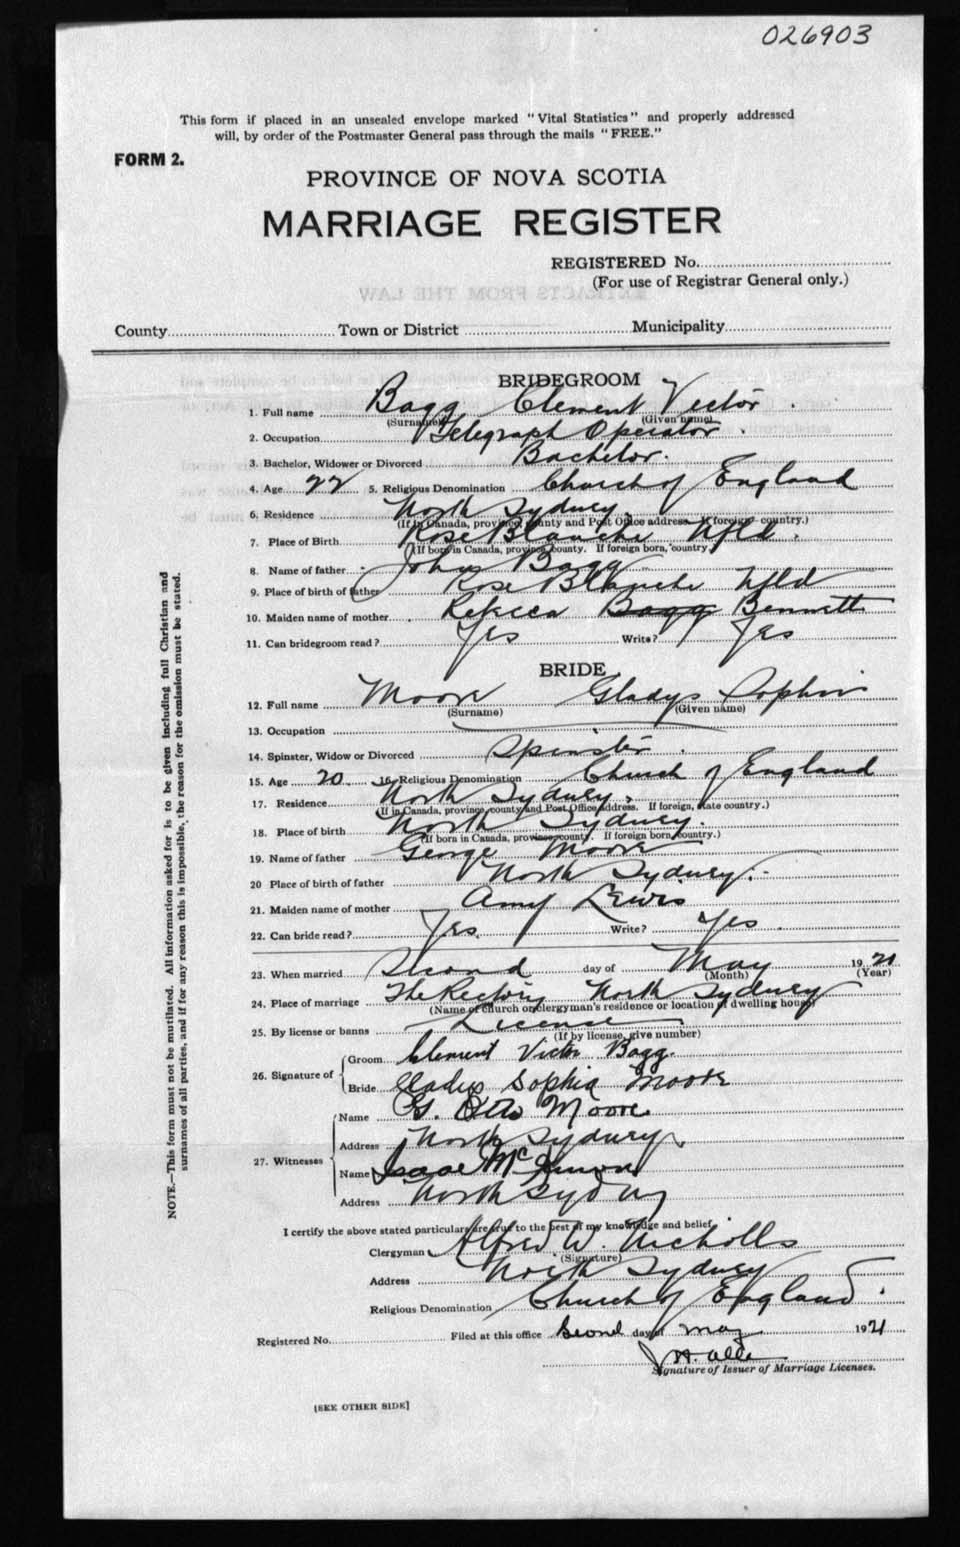 026903
This form if placed in an unsealed envelope marked "Vital Statistics" and properly addressed
will, by order of the Postmaster General pass through the mails "FREE."
FORM 2.
PROVINCE OF NOVA SCOTIA
MARRIAGE REGISTER
REGISTERED No.
(For use of Registrar General only.)
EXTRACTS FROM THE LAW
County Town or District Municipality
BRIDEGROOM
1. Full name Bagg Clement Victor
(Surname) (Given name)
2. Occupation Telegraph Operator
3. Bachelor, Widower or Divorced Bachelor.
4. Age 22 5. Religious Denomination Church of England
6. Residence North Sydney
(If in Canada, province, county and Post Office address. If foreign country.)
7. Place of Birth Rose Blanche Nfld.
(If born in Canada, province, county. If foreign born, country.)
8. Name of father John Bagg
9. Place of birth of father Rose Blanche Nfld
10. Maiden name of mother Rebecca Bagg Bennett
11. Can bridegroom read? Yes Write? Yes
BRIDE
12. Full name Moore Gladys Sophia
(Surname) (Given name)
13. Occupation
14. Spinster, Widow or Divorced Spinster
15. Age 20 16. Religious Denomination Church of England
17. Residence North Sydney.
(If in Canada, province, county and Post Office address. If foreign, state country.)
18. Place of birth North Sydney.
(If born in Canada, province, county. If foreign born, country.)
19. Name of father George Moore
20 Place of birth of father North Sydney.
21. Maiden name of mother Amy Lewis
22. Can bride read? Yes. Write? Yes.
23. When married Second day of May 1921
(Month) (Year)
24. Place of marriage The Rectory North Sydney
(Name of church or clergyman's residence or location of dwelling house)
25. By license or banns Licence
(If by license, give number)
26. Signature of Groom Clement Victor Bagg.
Bride Gladys Sophia Moore
27. Witnesses Name G. Moore
Address North Sydney.
Name Isaac
Address North Sydney
I certify the above stated particulars are true to the best of my knowledge and belief.
Clergyman Alfred W. Nicholls
(Signature)
Address North Sydney
Religious Denomination Church of England.
Registered No. Filed at this office Second day of May 1921
J. H.
Signature of Issuer of Marriage Licenses.
[SEE OTHER SIDE]
NOTE.—This form must not be mutilated. All information asked for is to be given including full Christian and
surnames of all parties, and if for any reason this is impossible, the reason for the omission must be stated.